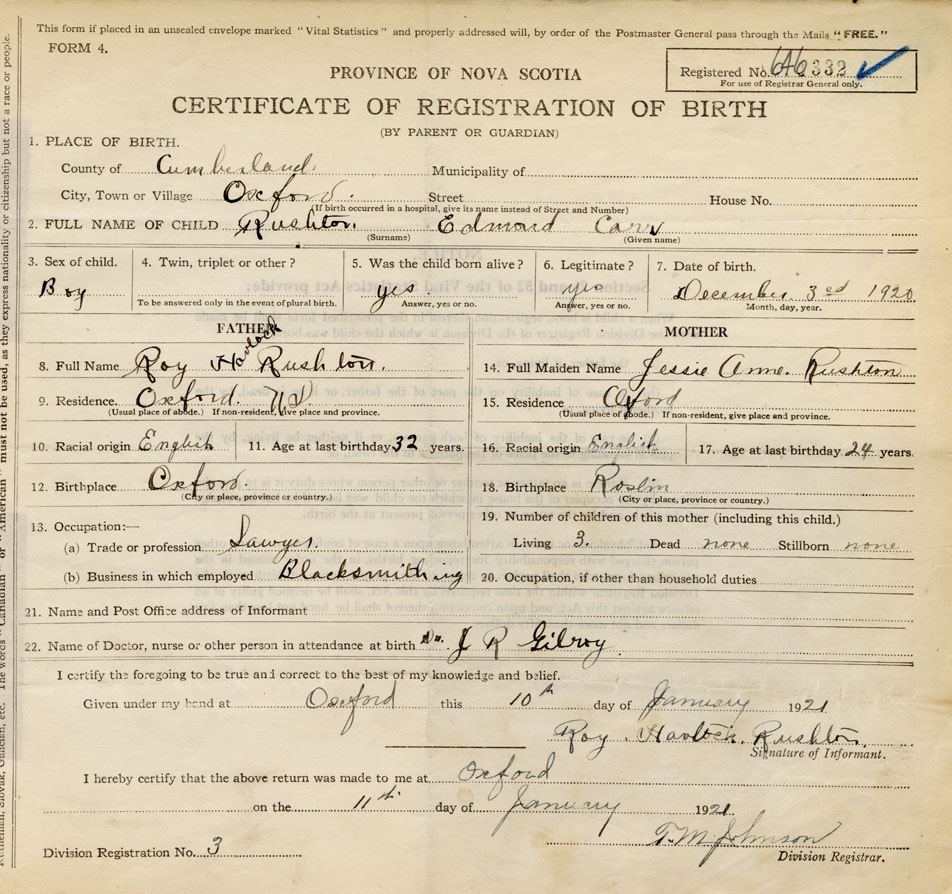 This form if placed in an unsealed envelope marked "Vital Statistics" and properly addressed will, by order of the Postmaster General pass through the Mails "FREE."
FORM 4.
Registered No. 646332
For use of Registrar General only.
PROVINCE OF NOVA SCOTIA
CERTIFICATE OF REGISTRATION OF BIRTH
(BY PARENT OR GUARDIAN)
1. PLACE OF BIRTH.
County of Cumberland. Municipality of
City, Town or Village Oxford. Street House No.
(If birth occurred in a hospital, give its name instead of Street and Number)
2. FULL NAME OF CHILD Rushton, Edmond Carr
(Surname) (Given name)
3. Sex of child. 4. Twin, triplet or other? 5. Was the child born alive? 6. Legitimate? 7. Date of birth.
Boy yes yes December 3rd 1920
To be answered only in the event of plural birth. Answer, yes or no. Answer, yes or no. Month, day, year.
FATHER MOTHER
8. Full Name Roy Havlock Rushton. 14. Full Maiden Name Jessie Anne. Rushton
9. Residence. Oxford. NS 15. Residence Oxford
(Usual place of abode.) If non-resident, give place and province. (Usual place of abode.) If non-resident, give place and province.
10. Racial origin English 11. Age at last birthday 32 years. 16. Racial origin English 17. Age at last birthday 24 years.
12. Birthplace Oxford. 18. Birthplace Roslin
(City or place, province or country.) (City or place, province or country.)
13. Occupation:— 19. Number of children of this mother (including this child.)
(a) Trade or profession Sawyer. Living 3. Dead none Stillborn none
(b) Business in which employed Blacksmithing 20. Occupation, if other than household duties
21. Name and Post Office address of Informant
22. Name of Doctor, nurse or other person in attendance at birth Dr. J R Gilroy
I certify the foregoing to be true and correct to the best of my knowledge and belief.
Given under my hand at Oxford this 10th day of January 1921
Roy Havlock. Rushton.
Signature of Informant.
I hereby certify that the above return was made to me at Oxford
on the 11th day of January 1921
T. M. Johnson
Division Registration No. 3 Division Registrar.
Ruthenian, Slovak, Galician, etc. The words "Canadian" or "American" must not be used, as they express nationality or citizenship but not a race or people.